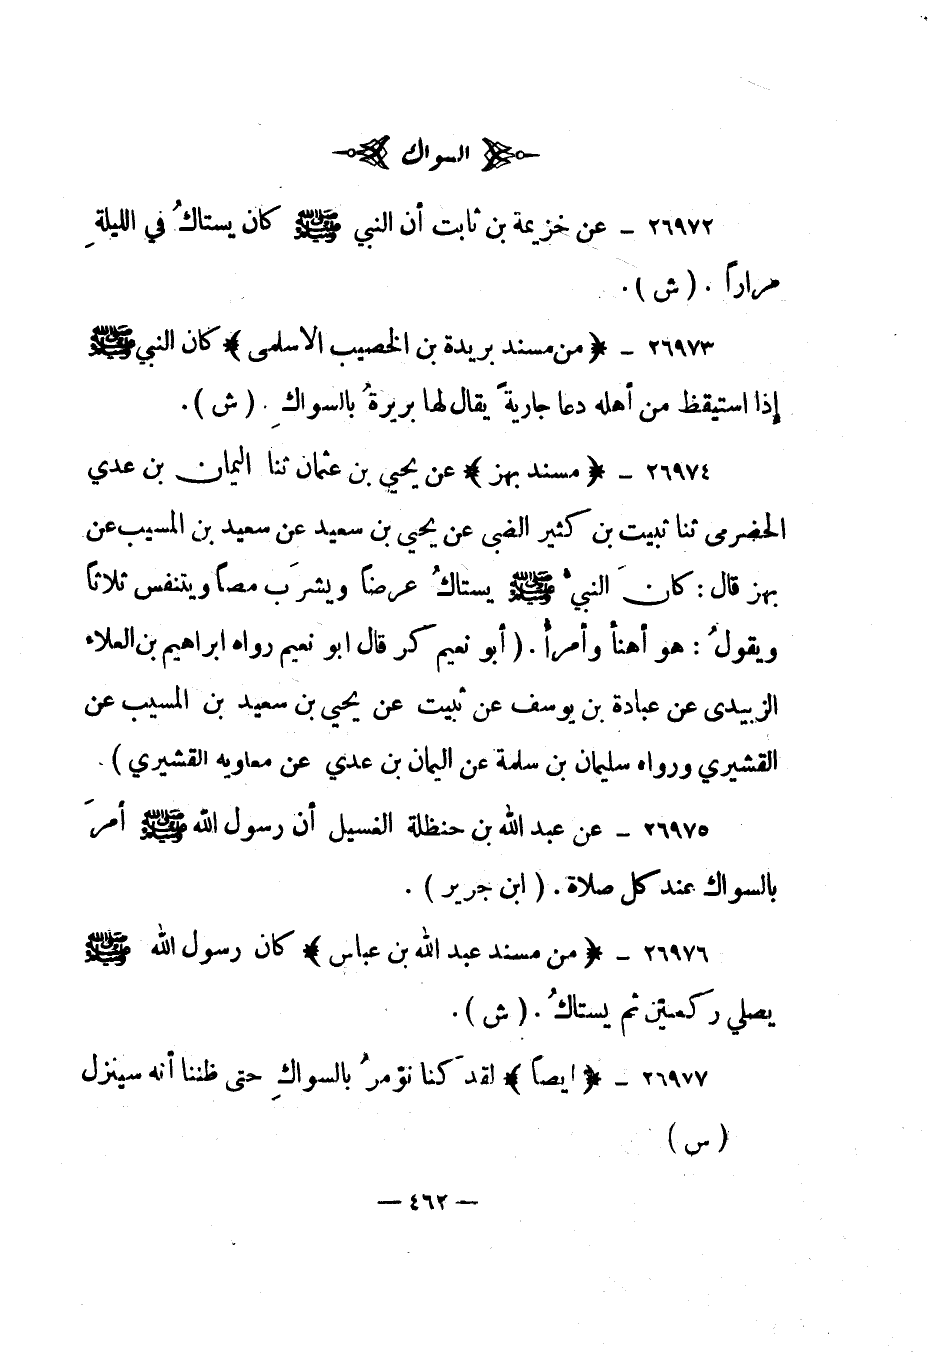 السواك
٢٦٩٧٢ – عن خزيمة بن ثابت أن النبي ﷺ كان يستاكُ في الليلةِ
مراراً . ( ش ) .
٢٦٩٧٣ – ﴿ من مسند بريدة بن الخصيب الاسلمى ﴾ كان النبي ﷺ
إذا استيقظ من أهله دعا جاريةً يقال لها بريرةُ بالسواكِ . ( ش ) .
٢٦٩٧٤ – ﴿ مسند بهز ﴾ عن يحيي بن عثمان ثنا اليمان بن عدي
الحضرمى ثنا ثبيت بن كثير الضبى عن يحيي بن سعيد عن سعيد بن المسيب عن
بهز قال : كانَ النبيُّ ﷺ يستاكُ عرضاً ويشرَب مصاً ويتنفس ثلاثاً
ويقولُ : هو أهنأ وأمرأُ . ( أبو نعيم كر قال ابو نعيم رواه ابراهيم بن العلاء
الزبيدى عن عبادة بن يوسف عن ثبيت عن يحيي بن سعيد بن المسيب عن
القشيري ورواه سليمان بن سلمة عن اليمان بن عدي عن معاويه القشيري ) .
٢٦٩٧٥ – عن عبد الله بن حنظلة الغسيل أن رسول الله ﷺ أمرَ
بالسواك عند كل صلاة . ( ابن جرير ) .
٢٦٩٧٦ – ﴿ من مسند عبد الله بن عباس ﴾ كان رسول الله ﷺ
يصلي ركعتين ثم يستاكُ . ( ش ) .
٢٦٩٧٧ – ﴿ ايضاً ﴾ لقدَ كنا نؤمرُ بالسواكِ حتى ظننا أنه سينزل
( س )
— ٤٦٢ —